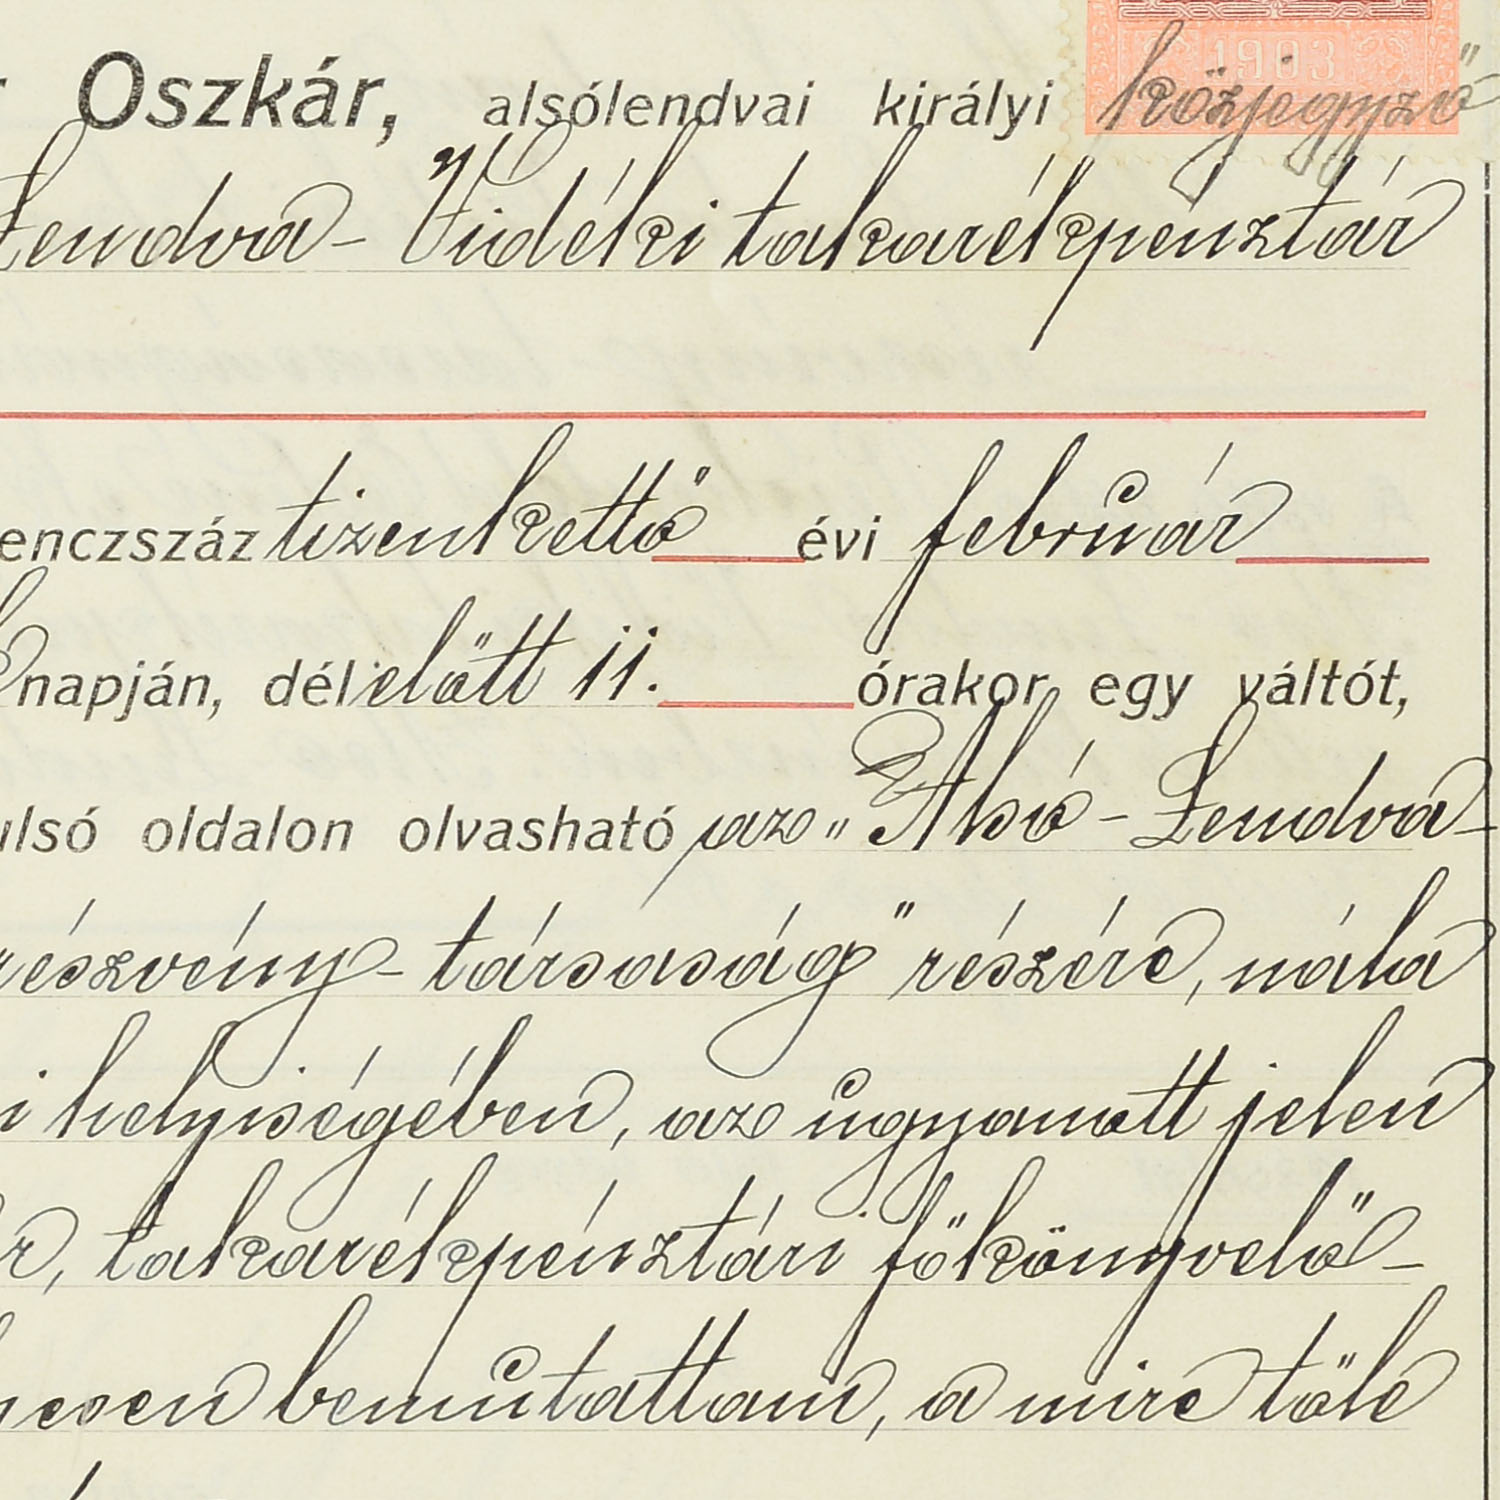 Oszkár, alsólendvai királyi közjegyző
1903
Lendva-Vidéki takarékpénztár
enczszáz tizenkettő évi február
napján, délelőtt 11. órakor egy váltót,
ulsó oldalon olvasható az „Alsó-Lendva-
részvény-társaság" részére, nála
i helyiségében, az ugyanott jelen
r, takarékpénztári főkönyvelő-
esen bemutattam, a mire tőle